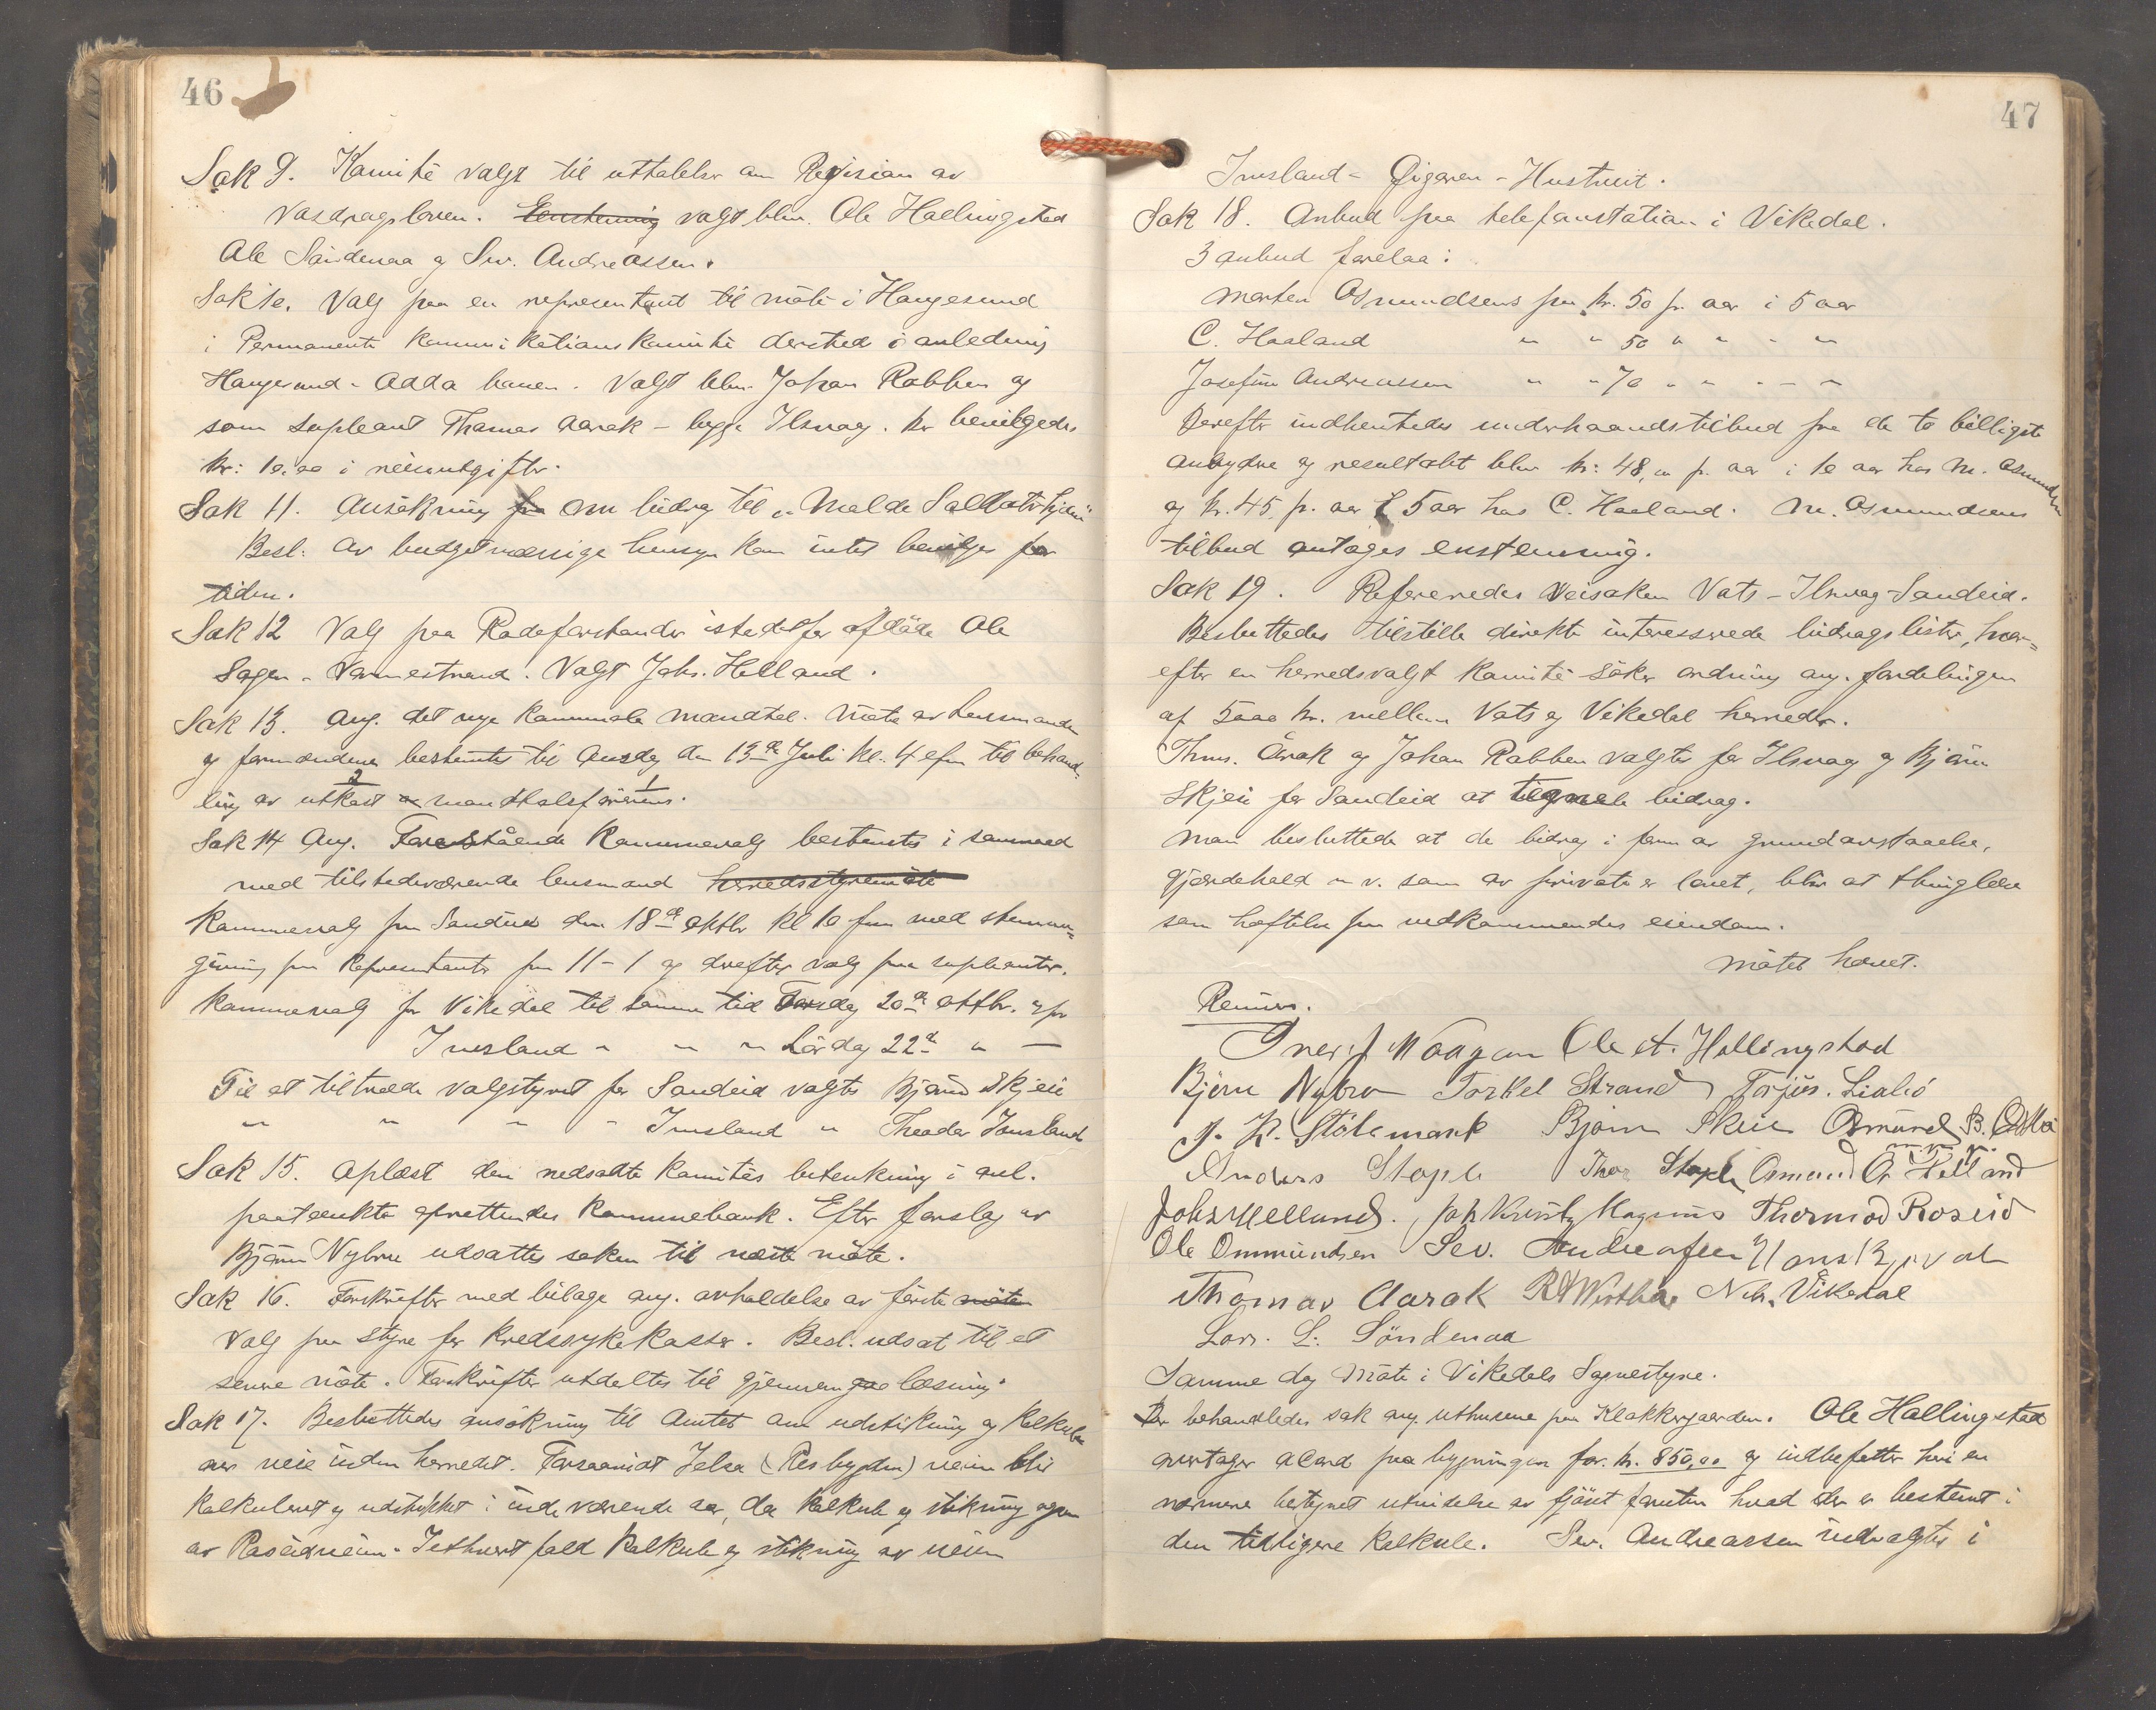 46
Sak 9. Kamite valgt til uttalelse om Revisian av
Vasdragsloven. Enstemmig valgt blev Ole Hallingstad
Ole Søndenaa og Sev. Andreassen.
Sak 10. Valg paa en representant til møte i Haugesund
i Permanente kammikatians kamite dersted i anledning
Haugesund-Odda banen. Valgt blev Johan Rabben og
som supleant Thomas Aarak - begge Ilsvag. Der bevilgedes
kr: 10.00 i reiseutgifter.
Sak 11. Ansøkning fra om bidrag til "Malde Soldaterhjem"
Besl. Av budgetmæssige hensyn kan intet bevilges for
tiden.
Sak 12 Valg paa Rodeforstander istedetfor afdøde Ole
Sagen - Vormestrand. Valgt Johs. Helland.
Sak 13. Ang. det nye kammunale mandtal. Møte av lensmanden
og formændene bestemtes til Onsdag den 13de Juli kl. 4 efm til behand-
ling av utkast 2 av mandtalsførerens 1.
Sak 14 Ang. Forestående Kammunevalg bestemtes i samraad
med tilstedeværende lensmand herredsstyremøte
Kammunevalg for Sandeid den 18de oktbr kl 10 fm med stemme-
givning paa Representanter fra 11-1 og derefter valg paa supleanter.
Kammunevalg for Vikedal til samme tid Torsdag 20de oktbr. og for
Imsland " " " Lørdag 22de " —
Til at tiltræde valgstyret for Sandeid valgtes Bjørn Skjeie
" " " " Imsland " Theodor Imsland
Sak 15. Oplæst den nedsatte kamites betenkning i anl.
paatænkte oprettendes Kammunebank. Efter forslag av
Bjørn Nybru udsattes saken til neste møte.
Sak 16. Forskrifter med bilage ang. avholdelse av første møte
Valg paa styre for Kredssykekasser. Besl. udsat til et
senere møte. Forskrifter utdeltes til gjennemgaa læsning.
Sak 17. Besluttedes ansøkning til Amtet om udstikning og kalkule
over veie inden herredet. Forsaavidt Jelsa (Ropbygden) veien blir
kalkuleret og udstukket i indeværende aar, da kalkule og stikning ogsaa
av Rosseidveien. Jethvert fald kalkule og stikning av veien
47
Imsland - Øigaren - Hustveit.
Sak 18. Anbud paa telefonstation i Vikedal.
3 anbud forelaa:
Morten Osmundsens paa kr. 50 pr. aar i 5 aar
C. Haaland " " 50 " " " "
Josefine Andreassen " " 70 " " " "
Derefter indhentedes underhaandstilbud fra de to billigste
anbydere og resultatet blev kr: 48,00 pr. aar i 10 aar hos M. Osmundsen
og kr. 45 pr. aar i 5 aar hos C. Haaland. M. Osmundsens
tilbud antages enstemmig.
Sak 19. Refereredes Veisaken Vats-Ilsvag-Sandeid.
Besluttedes tilstille direkte interesserede bidragslister, hvor-
efter en herredsvalgt kamite søker ordning ang. fordelingen
af 5000 kr. mellem Vats og Vikedal herreder.
Thms. Årak og Johan Rabben valgtes for Ilsvag og Bjørn
Skjeie for Sandeid at tegne bidrag.
Man besluttede at de bidrag i form av grundavstaaelse,
gjærdehold m. v. som av private er lovet, blir at thinglæse
som heftelse paa vedkommendes eiendom.
Møtet hævet.
Ole A. Hallingstad
Bjørn Nybru Torkel Strand Torjus. Lialiô
J. K. Stølemark Bjørn Skeie Osmund B.
Anders Stople Thor Stople Osmund O. Helland
Johs Helland. Thormod Roseid
Ole Ommundsen Sev. Andreassen
Thomas Aarak Nils. Vikedal
Lars. L. Søndenaa
Samme dag Møte i Vikedals Sognestyre.
Der behandledes sak ang. uthusene paa Klakkegaarden. Ole Hallingstad
overtager acord paa bygningen for kr. 850,00 og indbefatter heri en
nærmere betegnet utvidelse av fjøset foruten hvad der er bestemt i
den tidligere kalkule. Sev. Andreassen indvalgtes i